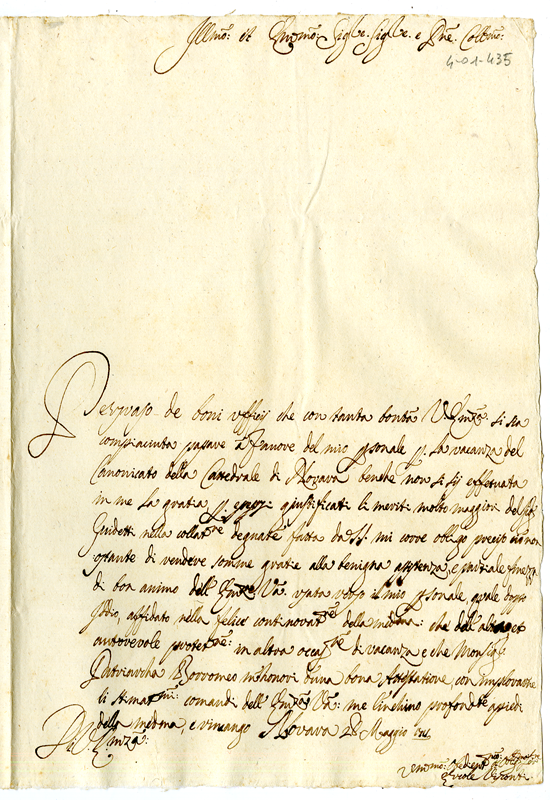 Illmo: et Emo: Sigre. Sigre. e Pne. Colmo:
4-01-435
Persuaso de boni ufficij che con tanta bontà V. Emza. si sia
compiaciuta passare à favore del mio psonale p. la vacanza del
Canonicato della Cattedrale di Novara benche non si sij effetuata
in me la gratia p. essersi giustificati li meriti molto maggiori del Sigr
Guidetti nella degnate. fatta da SS. mi corre obligo preciso ciò non
ostante di rendere somme gratie alla benigna e partiale
di bon animo dell' Emza Va. usata verso il mio psonale quale doppo
Iddio, affidato nella felice continovatne della medma: che dell'
autorevole protetne: in altra occasne di vacanza e che Monsigr
Patriarcha Borromeo m'honori d'una bona Attestatione, con
li stimatmi: comandi dell' Emza Va: me l'inchino profondte a piedi
della medma, e rimango Novara 28 Maggio
Di V. Emza:
Ercole Visconti